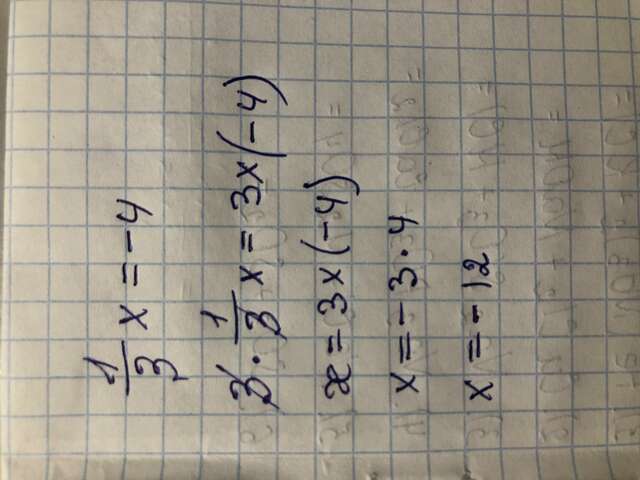 1/3 x = -4
3 · 1/3 x = 3x(-4)
x = 3x(-4)
x = -3 · 4
x = -12